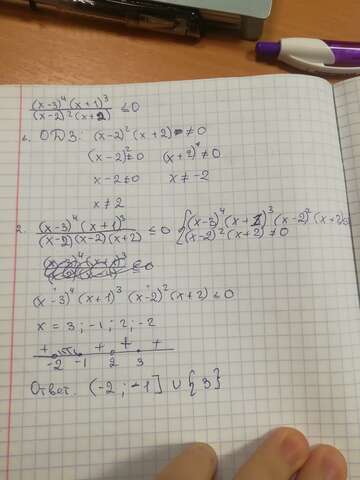 (x-3)⁴(x+1)³ / (x-2)²(x+2) ≤0
1. ОДЗ. (x-2)²(x+2) ≠0
(x-2)²≠0 (x+2)≠0
x-2≠0 x≠-2
x≠2
2. (x-3)⁴(x+1)³ / (x-2)(x-2)(x+2) ≤0 { (x-3)⁴(x+1)³(x-2)²(x+2)
(x-2)²(x+2)≠0
(x-3)⁴(x+1)³(x-2)²(x+2)≤0
x = 3; -1; 2; -2
+ - + + +
-2 -1 2 3
Ответ. (-2; -1] ∪ {3}